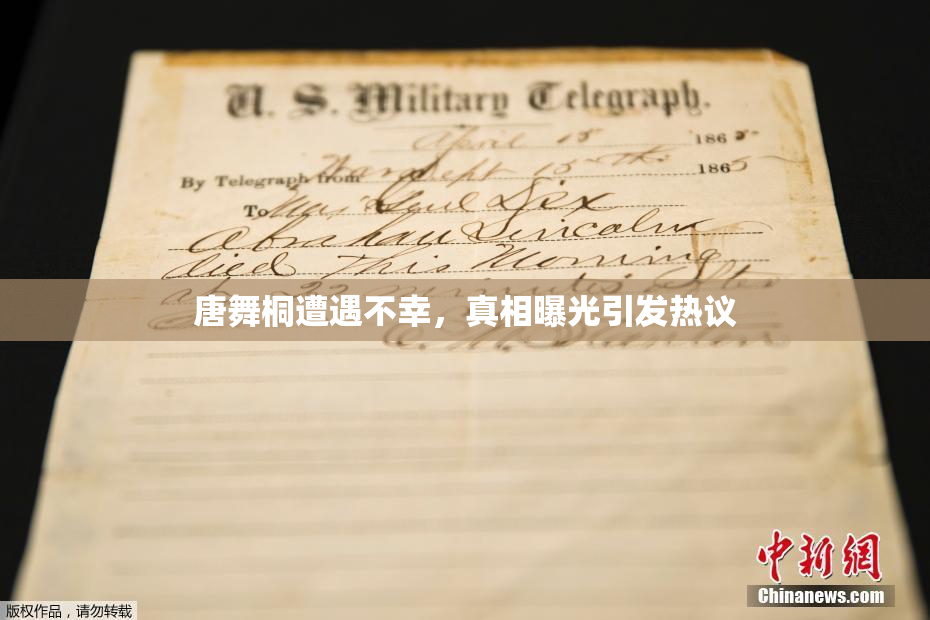 U. S. Military Telegraph.
April 15 1865
By Telegraph from War Dept 15th 1865
To Maj Genl Dix
Abraham Lincoln
died This Morning
at 22 minutes after
唐舞桐遭遇不幸，真相曝光引发热议
E. M. Stanton
中新网
Chinanews.com
版权作品，请勿转载